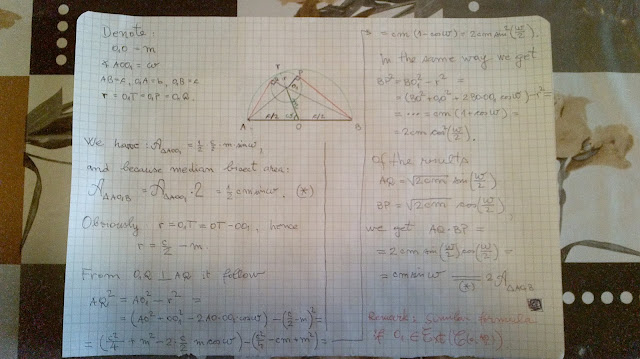 Denote:
O₁O = m
∢AOO₁ = w
AB = c, O₁A = b, O₁B = a
r = O₁T = O₁P = O₁Q.
r
A c/2 O c/2 B
We have: A△AOO₁ = ½ · c/2 · m sin w,
and because median bisect area:
A△AO₁B = A△AOO₁ · 2 = ½ cm sin w. (*)
Obviously r = O₁T = OT - OO₁, hence
r = c/2 - m.
From O₁Q ⊥ AQ it follow
AQ² = AO₁² - r² =
= (AO² + OO₁² - 2AO·OO₁ cos w) - (c/2 - m)² =
= (c²/4 + m² - 2· c/2 m cos w) - (c²/4 - cm + m²) =
= cm(1 - cos w) = 2cm sin²(w/2).
In the same way we get
BP² = BO₁² - r² =
= (BO² + O₁O² + 2BO·OO₁ cos w) - r² =
= ... = cm(1 + cos w) =
= 2cm cos²(w/2).
Of the results
AQ = √2cm sin(w/2)
BP = √2cm cos(w/2)
we get AQ·BP =
= 2cm sin(w/2) cos(w/2) =
= cm sin w =(*) 2A△AO₁B
Remark: Similar formula
if O₁ ∈